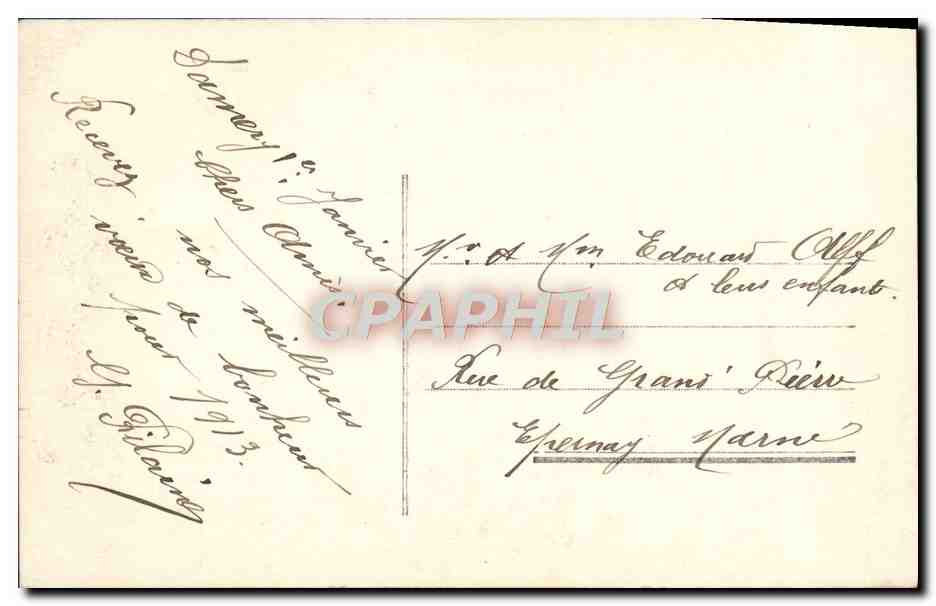 Damery 1er Janvier
Chers Amis.
Recevez nos meilleurs
vœux de bonheur
pour 1913.
G.
Mr. et Mm Edouard
et leurs enfants.
Rue de Grand Pierre
Epernay Marne
CPAPHIL